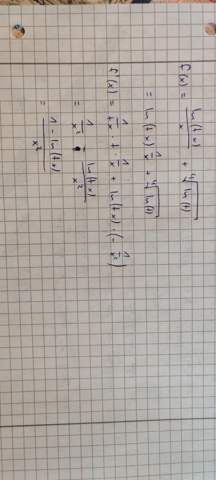 f(x) = ln(tx)/x + ⁴√ln(t)
= ln(tx) · 1/x + ⁴√ln(t)
f'(x) = 1/tx · t · 1/x + ln(tx) · (- 1/x²)
= 1/x² - ln(tx)/x²
= 1 - ln(tx)/x²